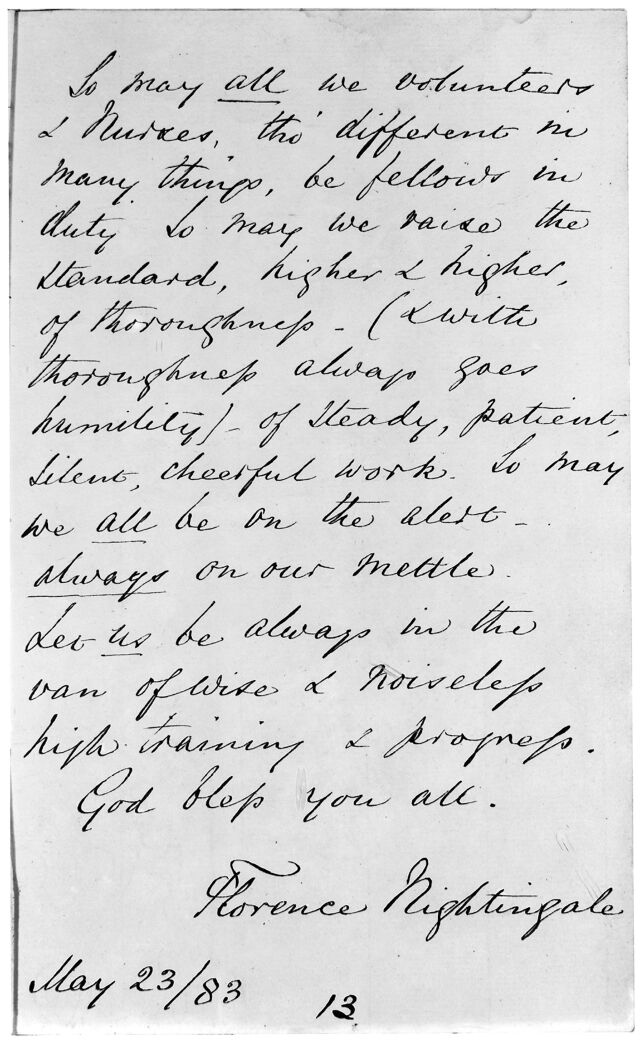 So may all we volunteers
& Nurses, tho' different in
many things, be fellows in
duty. So may we raise the
standard, higher & higher,
of thoroughness - (& with
thoroughness always goes
humility) - of steady, patient,
silent, cheerful work. So may
we all be on the alert -
always on our mettle.
Let us be always in the
van of wise & noiseless
high training & progress.
God bless you all.
Florence Nightingale
May 23/83
13